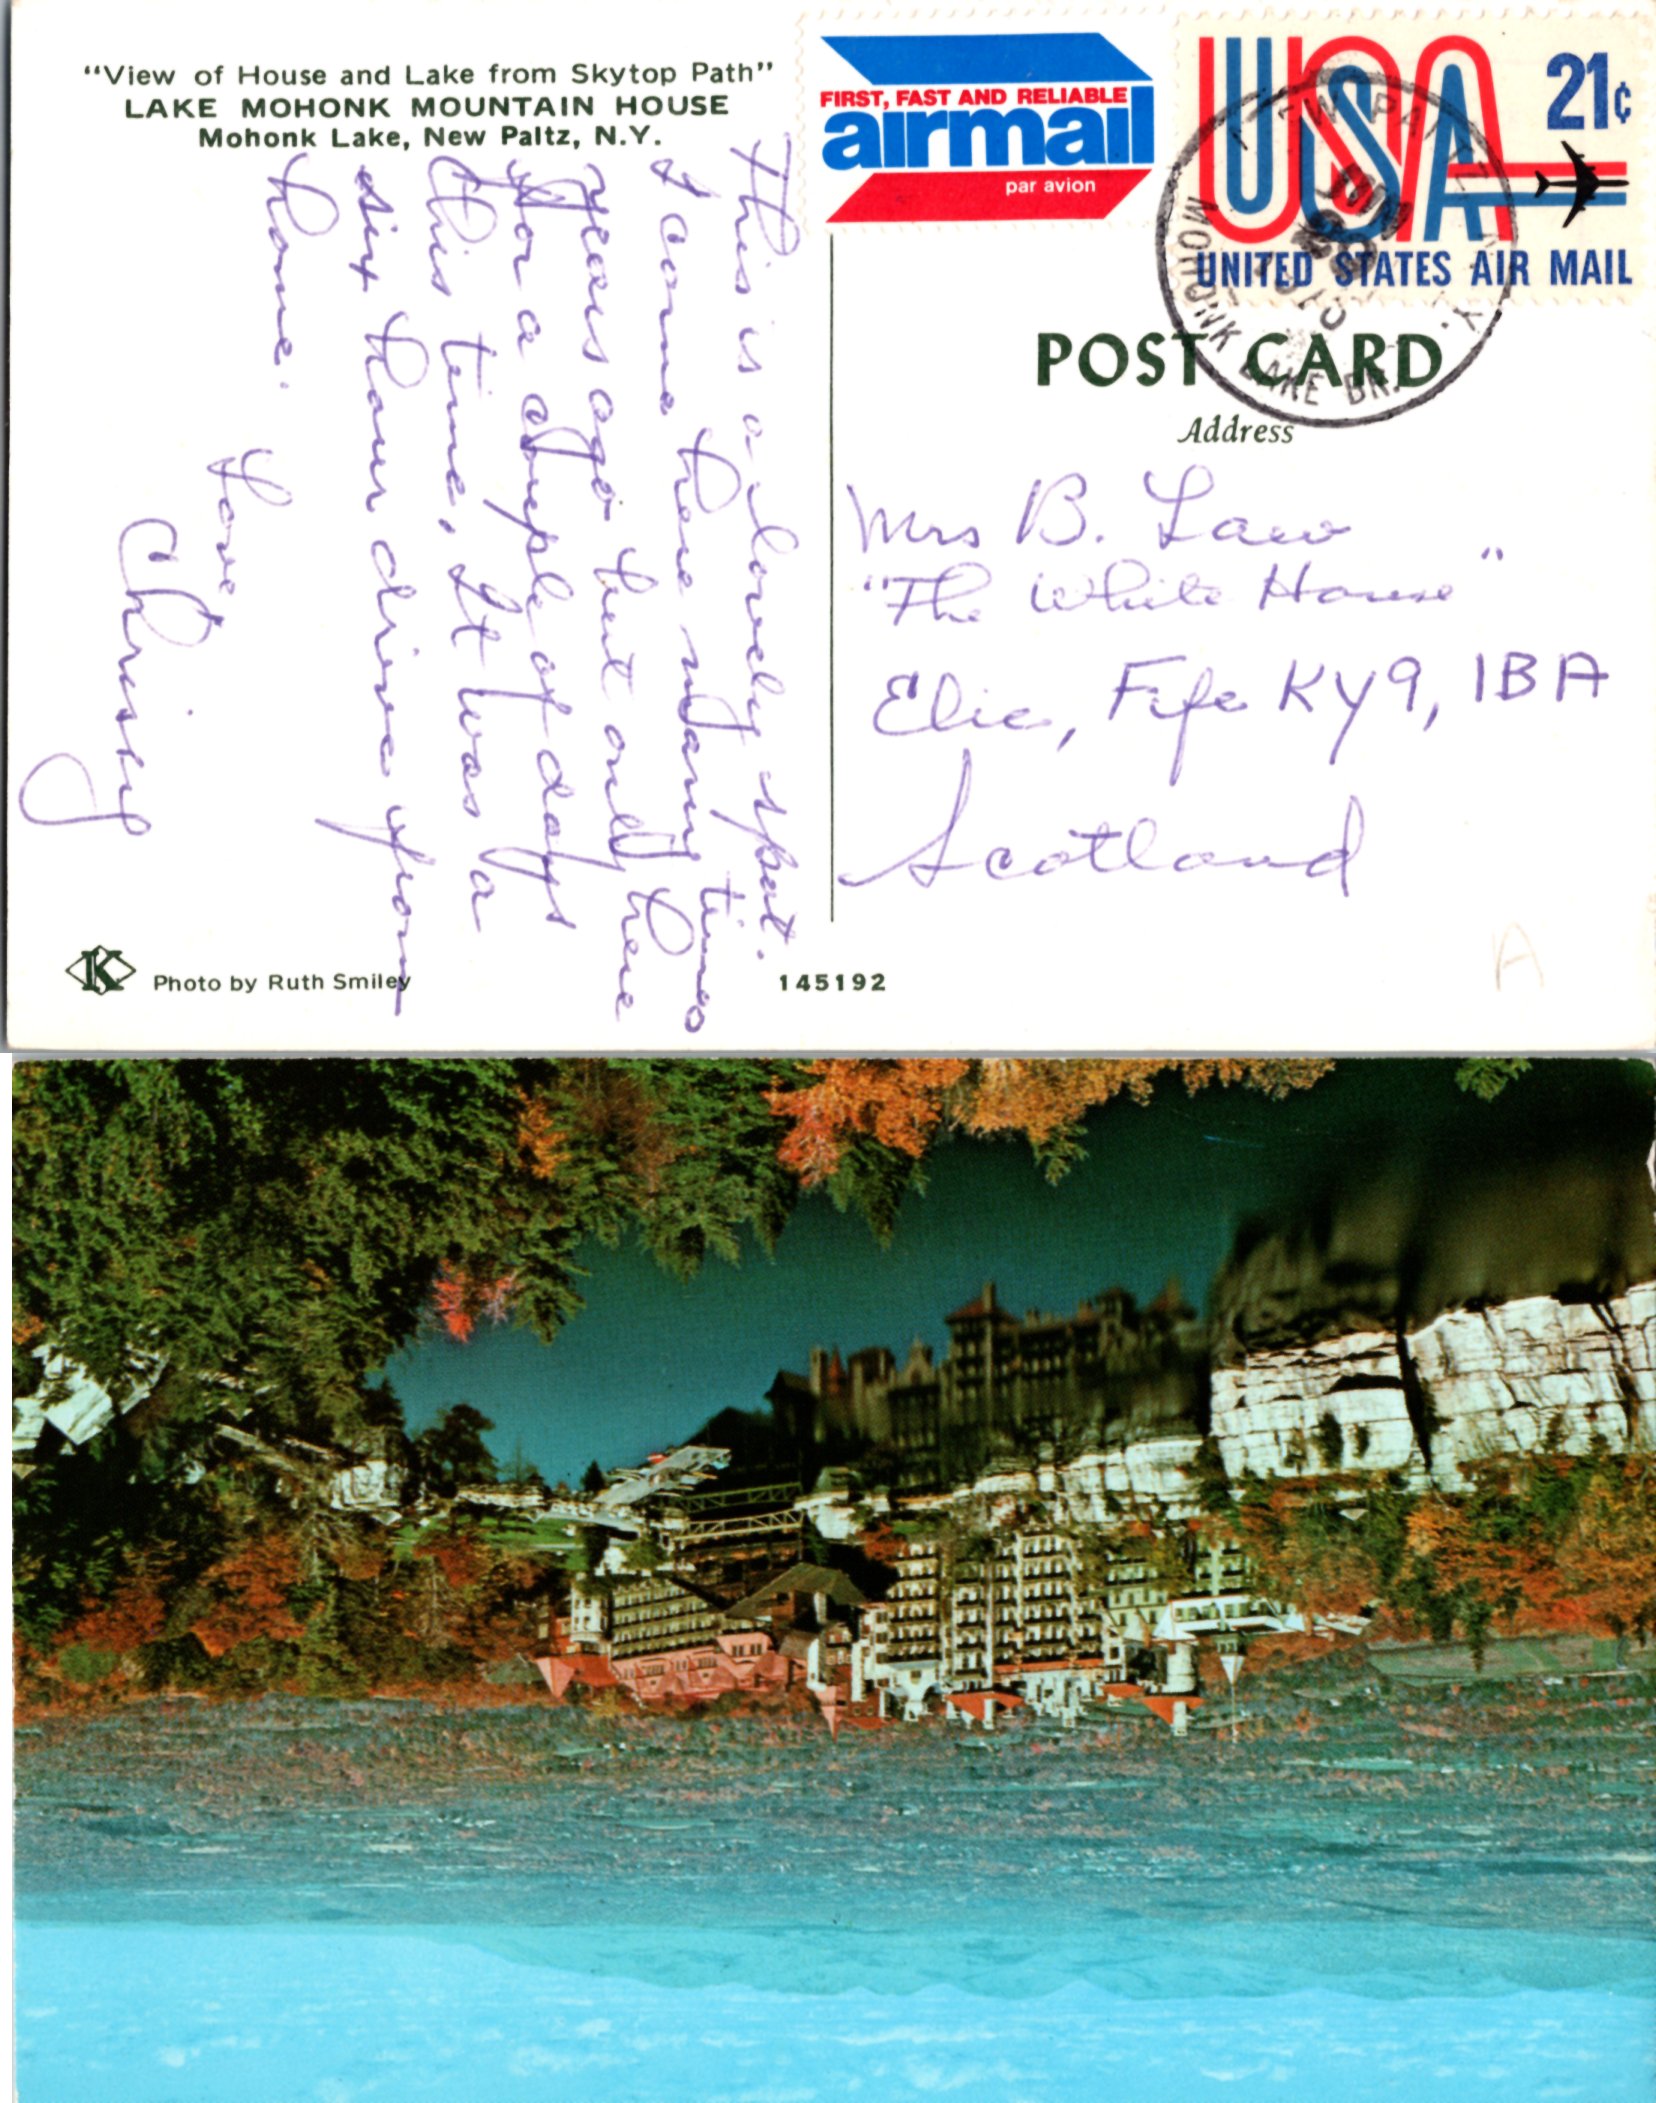 “View of House and Lake from Skytop Path”
LAKE MOHONK MOUNTAIN HOUSE
Mohonk Lake, New Paltz, N.Y.
This is a lovely spot.
I came here many times
years ago but only here
for a couple of days
this time, It was a
six hour drive from
home.
Love
Chrissy
FIRST, FAST AND RELIABLE
airmail
par avion
USA
21c
UNITED STATES AIR MAIL
MOHONK LAKE BR.
POST CARD
Address
Mrs B. Law
"The White House"
Elie, Fife KY9, 1BA
Scotland
A
K
Photo by Ruth Smiley
145192